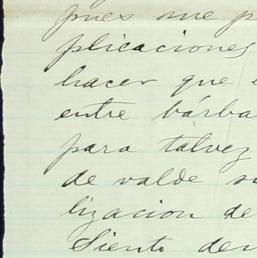 pues me p
plicaciones
hacer que
entre bárba
para talvez
de valde su
lizacion de
Siento den